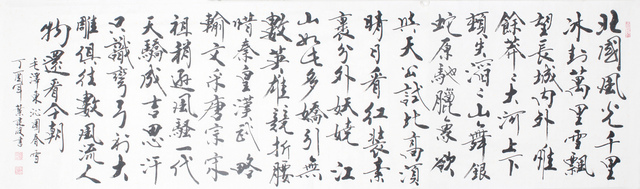 北國風光千里
冰封萬里雪飄
望長城內外唯
餘莽々大河上下
頓失滔々山舞銀
蛇原馳臘象欲
与天公試比高須
晴日看紅裝素
裹分外妖嬈 江
山如此多嬌引無
數英雄競折腰
惜秦皇漢武略
輸文采唐宗宋
祖稍遜風騷一代
天驕成吉思汗
只識彎弓射大
雕俱往數風流人
物還看今朝
毛澤東沁園春雪
丁酉年 書